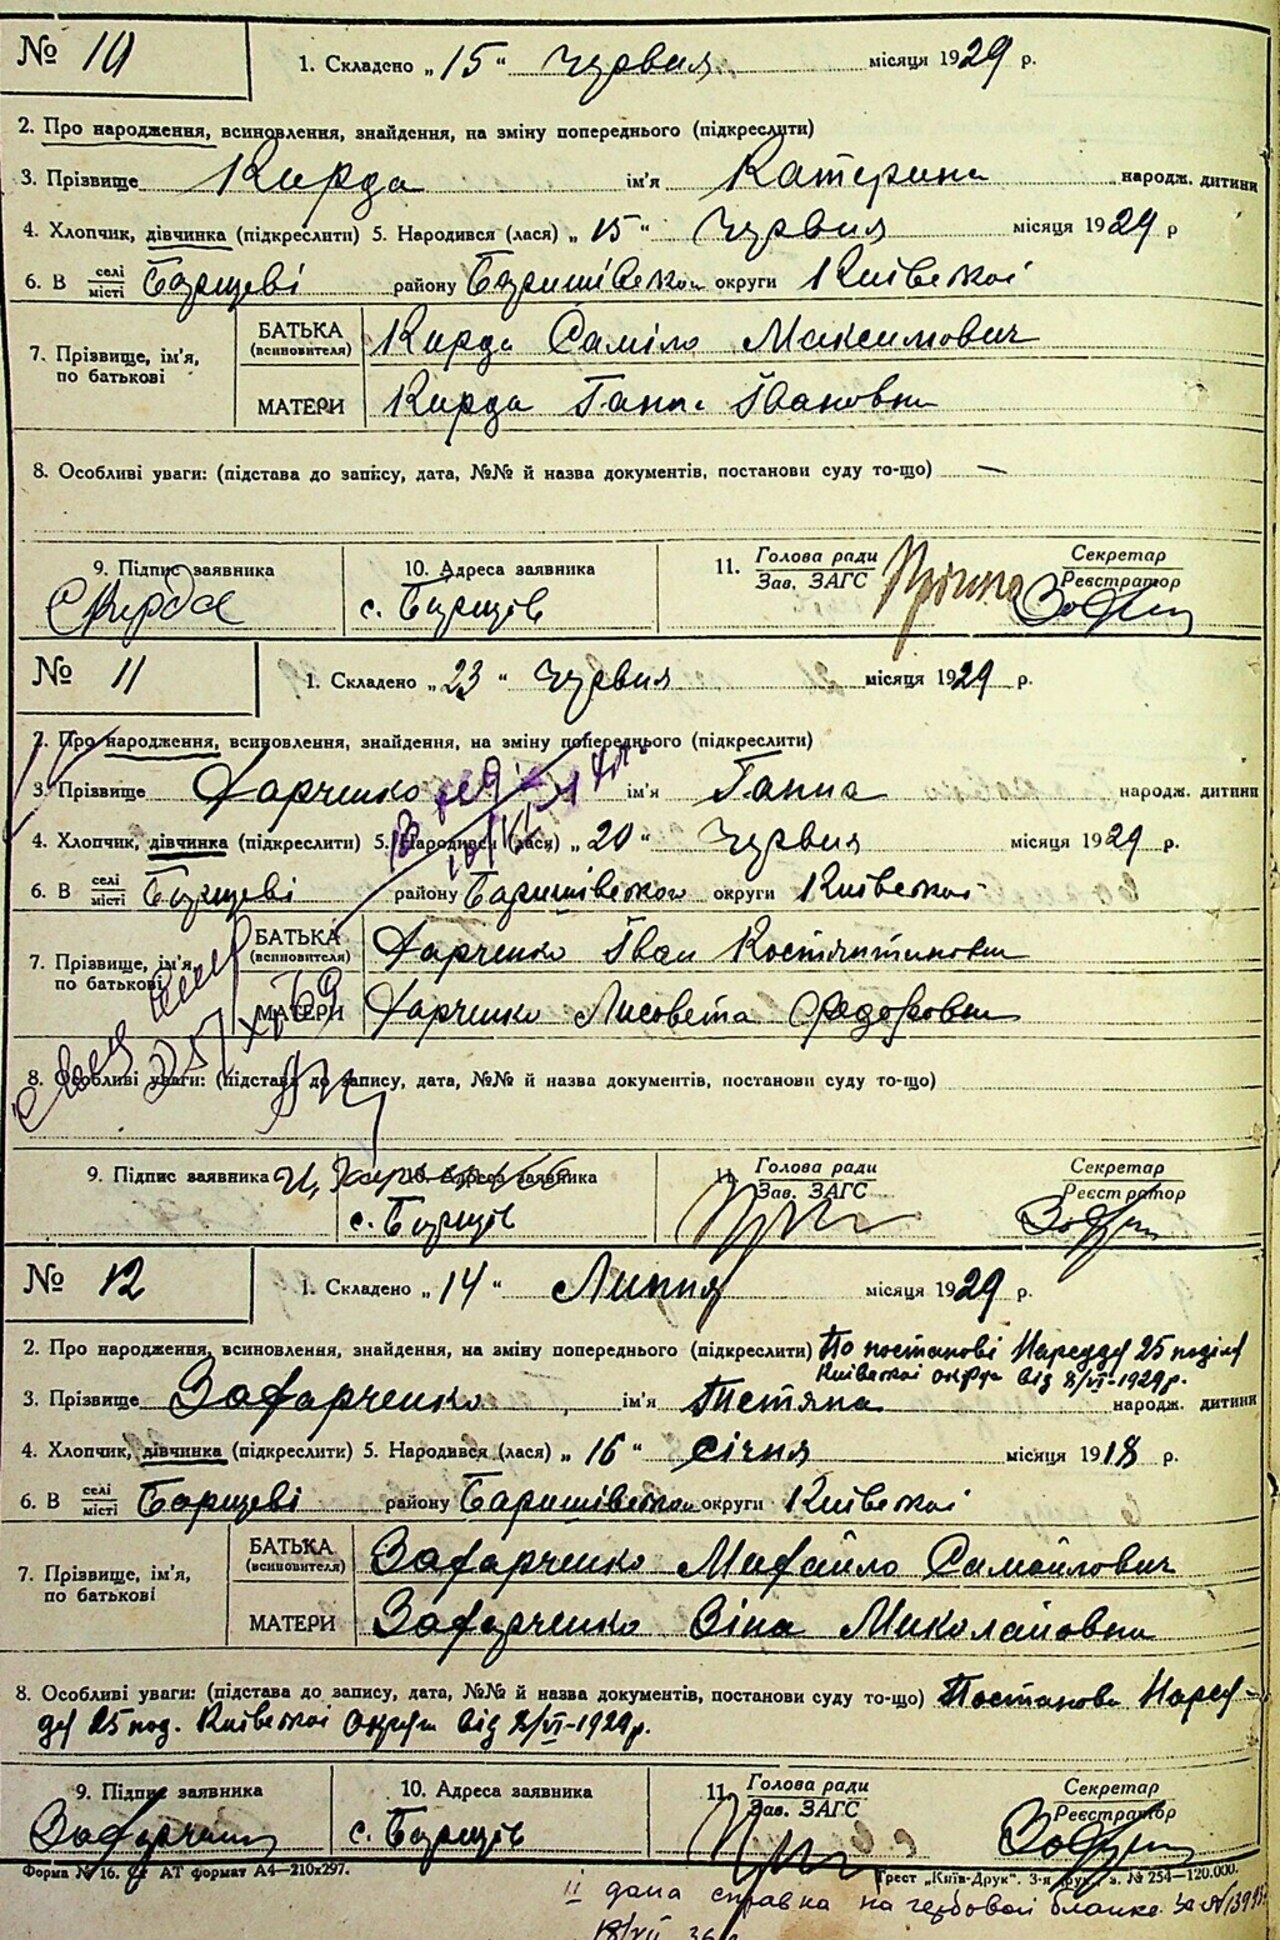 № 10 1. Складено „15“ Червня місяця 1929 р.
2. Про народження, всиновлення, знайдення, на зміну попереднього (підкреслити)
3. Прізвище Кирда ім'я Катерина народж. дитини
4. Хлопчик, дівчинка (підкреслити) 5. Народився (лася) „15“ Червня місяця 1929 р
6. В селі місті Борщеві району Баришівської округи Київської
7. Прізвище, ім'я, по батькові БАТЬКА (всиновителя) Кирда Саміло Максимович
МАТЕРИ Кирда Ганна Івановна
8. Особливі уваги: (підстава до запису, дата, №№ й назва документів, постанови суду то-що) —
9. Підпис заявника 10. Адреса заявника 11. Голова ради Зав. ЗАГС Секретар Реєстратор
С Кирда с. Борщів
№ 11 1. Складено „23“ Червня місяця 1929 р.
2. Про народження, всиновлення, знайдення, на зміну попереднього (підкреслити)
3. Прізвище Харченко ім'я Ганна народж. дитини
4. Хлопчик, дівчинка (підкреслити) 5. Народився (лася) „20“ Червня місяця 1929 р.
6. В селі місті Борщеві району Баришівської округи Київської
7. Прізвище, ім'я, по батькові БАТЬКА (всиновителя) Харченко Іван Костянтинович
МАТЕРИ Харченко Лисовета Федоровна
8. Особливі уваги: (підстава до запису, дата, №№ й назва документів, постанови суду то-що)
9. Підпис заявника 10. Адреса заявника 11. Голова ради Зав. ЗАГС Секретар Реєстратор
с. Борщів
№ 12 1. Складено „14“ Липня місяця 1929 р.
2. Про народження, всиновлення, знайдення, на зміну попереднього (підкреслити) По постанові Нарсуду 25 поділу
Київської округи від 8/VI-1929р.
3. Прізвище Захарченко ім'я Тетяна народж. дитини
4. Хлопчик, дівчинка (підкреслити) 5. Народився (лася) „16“ січня місяця 1918 р.
6. В селі місті Борщеві району Баришівської округи Київської
7. Прізвище, ім'я, по батькові БАТЬКА (всиновителя) Захарченко Михайло Самойлович
МАТЕРИ Захарченко Зіна Миколаївна
8. Особливі уваги: (підстава до запису, дата, №№ й назва документів, постанови суду то-що) Постанова Нарсу-
ду 25 под. Київської Округи від 8/VI-1929р.
9. Підпис заявника 10. Адреса заявника 11. Голова ради Зав. ЗАГС Секретар Реєстратор
с. Борщів
Форма № 16. АТ формат А4—210х297. Трест „Київ-Друк“. 3-я друк. з. № 254—120.000.
11 дана справка на гербовой бланке за №